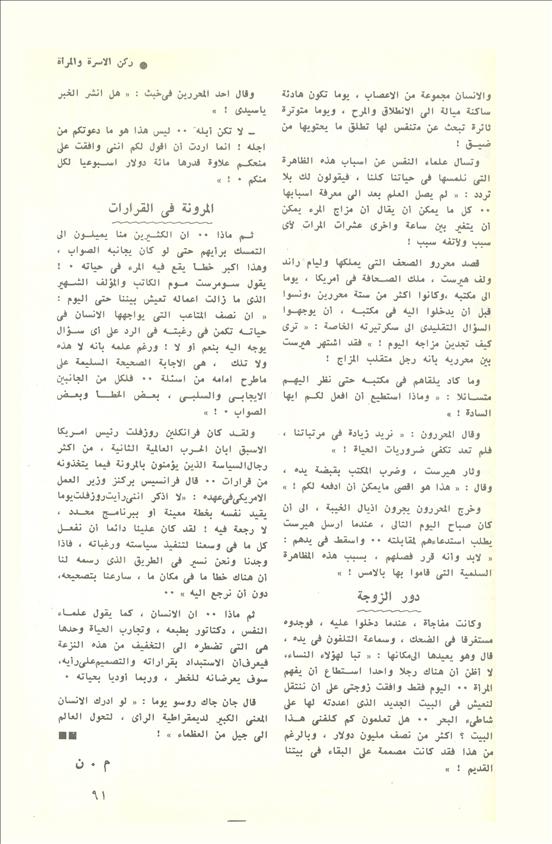 ● ركن الاسرة والمراة
والانسان مجموعة من الاعصاب ، يوما تكون هادئة
ساكنة ميالة الى الانطلاق والمرح ، ويوما متوترة
ثائرة تبحث عن متنفس لها تطلق ما يحتويها من
ضيق !
وتسأل علماء النفس عن اسباب هذه الظاهرة
التي نلمسها في حياتنا كلنا ، فيقولون لك بلا
تردد : « لم يصل العلم بعد الى معرفة اسبابها
٠٠ كل ما يمكن أن يقال أن مزاج المرء يمكن
أن يتغير بين ساعة واخرى عشرات المرات لأى
سبب ولأتفه سبب !
قصد محررو الصحف التي يملكها وليام راند
ولف هيرست ، ملك الصحافة في أمريكا ، يوما
الى مكتبه ،وكانوا اكثر من ستة محررين ،ونسوا
قبل أن يدخلوا اليه في مكتبه ، أن يوجهوا
السؤال التقليدى الى سكرتيرته الخاصة : « ترى
كيف تجدين مزاجه اليوم ! » فقد اشتهر هيرست
بين محرريه بأنه رجل متقلب المزاج !
وما كاد يلقاهم في مكتبه حتى نظر اليهم
متسائلا : « وماذا استطيع أن افعل لكم ايها
السادة ! »
وقال المحررون : « نريد زيادة في مرتباتنا ،
فلم تعد تكفى ضروريات الحياة ! »
وثار هيرست ، وضرب المكتب بقبضة يده ،
وقال : « هذا هو اقصى مايمكن أن ادفعه لكم ! »
وخرج المحررون يجرون اذيال الخيبة ، الى أن
كان صباح اليوم التالى ، عندما ارسل هيرست
يطلب استدعاءهم لمقابلته ٠٠ واسقط في يدهم :
« لابد وأنه قرر فصلهم ، بسبب هذه المظاهرة
السلمية التي قاموا بها بالامس ! »
دور الزوجة
وكانت مفاجأة ، عندما دخلوا عليه ، فوجدوه
مستغرقا في الضحك ، وسماعة التلفون في يده ،
قال وهو يعيدها الىمكانها : « تبا لهؤلاء النساء،
لا أظن أن هناك رجلا واحدا استطاع أن يفهم
المرأة ٠٠ اليوم فقط وافقت زوجتى على أن ننتقل
لنعيش في البيت الجديد الذى اعددته لها على
شاطىء البحر ٠٠ هل تعلمون كم كلفنى هذا
البيت ؟ أكثر من نصف مليون دولار ، وبالرغم
من هذا فقد كانت مصممة على البقاء في بيتنا
القديم ! »
وقال احد المحررين فىخبث : « هل انشر الخبر
ياسيدى ! »
ــ لا تكن أبله ٠٠ ليس هذا هو ما دعوتكم من
اجله ! انما اردت أن اقول لكم اننى وافقت على
منحكم علاوة قدرها مائة دولار اسبوعيا لكل
منكم ٠ ! »
المرونة في القرارات
ثم ماذا ٠٠ ان الكثيرين منا يميلون الى
التمسك برأيهم حتى لو كان يجانبه الصواب ،
وهذا اكبر خطأ يقع فيه المرء في حياته ٠ !
يقول سومرست موم الكاتب والمؤلف الشهير
الذى ما زالت اعماله تعيش بيننا حتى اليوم :
« ان نصف المتاعب التي يواجهها الانسان في
حياته تكمن في رغبته في الرد على أى سؤال
يوجه اليه بنعم أو لا ! ورغم علمه بأنه لا هذه
ولا تلك ، هى الاجابة الصحيحة السليمة على
ماطرح امامه من اسئلة ٠٠ فلكل من الجانبين
الايجابى والسلبى ، بعض الخطأ وبعض
الصواب ٠ ! »
ولقد كان فرانكلين روزفلت رئيس امريكا
الاسبق ابان الحرب العالمية الثانية ، من اكثر
رجال السياسة الذين يؤمنون بالمرونة فيما يتخذونه
من قرارات ٠٠ قال فرانسيس بركنز وزير العمل
الامريكى فى عهده : «لا اذكر اننى رأيت روزفلت يوما
يقيد نفسه بخطة معينة أو ببرنامج محدد ،
لا رجعة فيه ! لقد كان علينا دائما أن نفعل
كل ما في وسعنا لتنفيذ سياسته ورغباته ، فاذا
وجدنا ونحن نسير في الطريق الذى رسمه لنا
أن هناك خطأ ما في مكان ما ، سارعنا بتصحيحه،
دون أن نرجع اليه » ٠٠
ثم ماذا ٠٠ ان الانسان ، كما يقول علماء
النفس ، دكتاتور بطبعه ، وتجارب الحياة وحدها
هى التي تضطره الى التخفيف من هذه النزعة
فيعرف أن الاستبداد بقراراته والتصميم على رأيه،
سوف يعرضانه للخطر ، وربما أوديا بحياته ٠
قال جان جاك روسو يوما : « لو ادرك الانسان
المعنى الكبير لديمقراطية الرأى ، لتحول العالم
الى جيل من العظماء » !
م ٠ ن
٩١